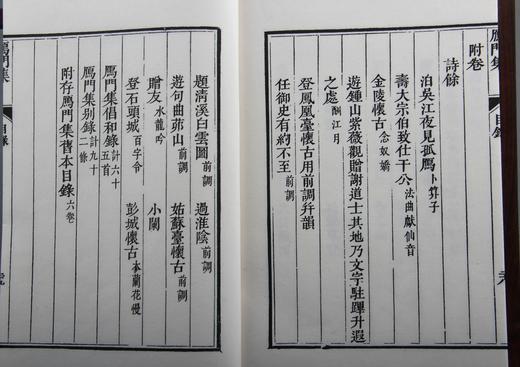 鴈門集 目錄
附卷
詩餘
泊吳江夜見孤鴈 卜算子
壽大宗伯致仕干公 法曲獻仙音
金陵懷古 念奴嬌
遊鍾山紫薇觀贈謝道士其地乃文宗駐蹕升遐
之處 酹江月
登鳳凰臺懷古用前調幷韻
任御史有約不至 前調
題清溪白雲圖 前調 過淮陰 前調
遊句曲茆山 前調 姑蘇臺懷古 前調
贈友 水龍吟 小闌
登石頭城 百字令 彭城懷古 木蘭花慢
鴈門集倡和錄 計六十五首
鴈門集別錄 計九十二條
附存鴈門集舊本目錄 六卷
鴈門集 目錄